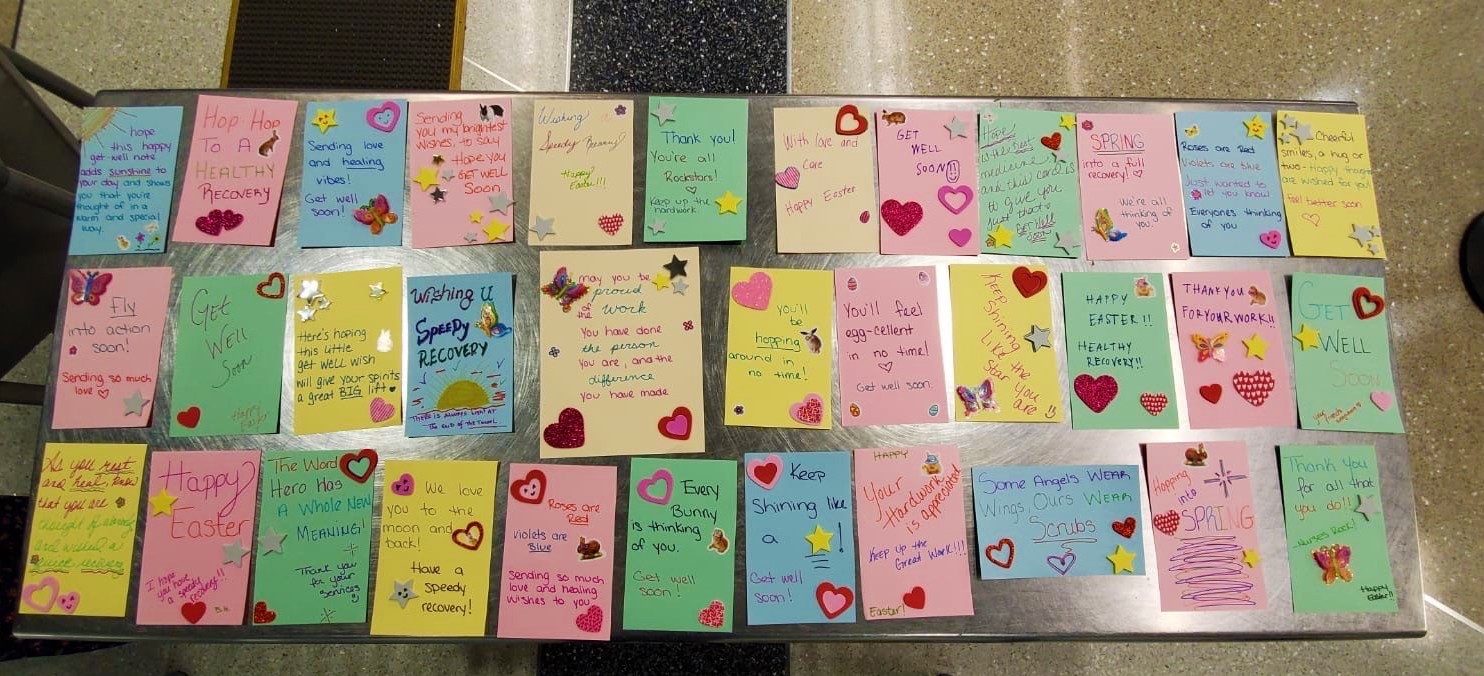 hope
this happy
get-well note
adds sunshine to
your day and shows
you that you're
thought of in a
warm and special
way.
Hop-Hop
TO A
HEALTHY
RECOVERY
Sending love
and healing
vibes!
Get well
soon!
Sending
you my brightest
wishes, to say
Hope you
GET WELL
Soon
Wishing
Speedy
Happy
Easter!!!
Thank you!
You're all
Rockstars!
Keep up the
hardwork
With love and
care
Happy Easter
GET
WELL
SOON!!
Hope
is the best
medicine
and this card is
to give you
just that
GET WELL
SOON
SPRING
into a full
recovery!
We're all
thinking of
you.
Roses are Red
Violets are blue
Just wanted to
let you know
Everyones thinking
of you
Cheerful
smiles, a hug or
two - Happy thoughts
are wished for you!
feel better soon
Fly
into action
soon!
Sending so much
love
Get
Well
Soon
Happy
Easter
Here's hoping
this little
get well wish
will give your spirits
a great BIG lift
Wishing U
A
SPEEDY
RECOVERY
There is always light at
the end of the tunnel
may you be
proud
of the work
You have done
the person
you are, and the
difference
you have made
you'll
be
hopping
around in
no time!
You'll feel
egg-cellent
in no time!
Get well soon.
Keep
Shining
like the
Star You
are
HAPPY
EASTER!!
HEALTHY
RECOVERY!!
THANK YOU
FOR YOUR WORK!!
GET
WELL
SOON
As you rest
and heal, know
that you are
thought of
and wished a
quick recovery
Happy
Easter
I hope
you have
a speedy
recovery!!
The Word
Hero Has
A Whole New
MEANING!
Thank you
for your
services
We love
you to the
moon and
back!
Have a
speedy
recovery!
Roses are
Red
violets are
Blue
Sending so much
love and healing
wishes to you
Every
Bunny
is thinking
of you.
Get well
soon!
Keep
Shining like
a !
Get well
soon!
HAPPY
Your
Hardwork
is appreciated
Keep up the
Great Work!!!
Easter!
Some Angels WEAR
Wings, Ours WEAR
Scrubs
Hopping
into
SPRING
Thank you
for all that
you do!!
-Nurses Rock!
Happy
Easter!!